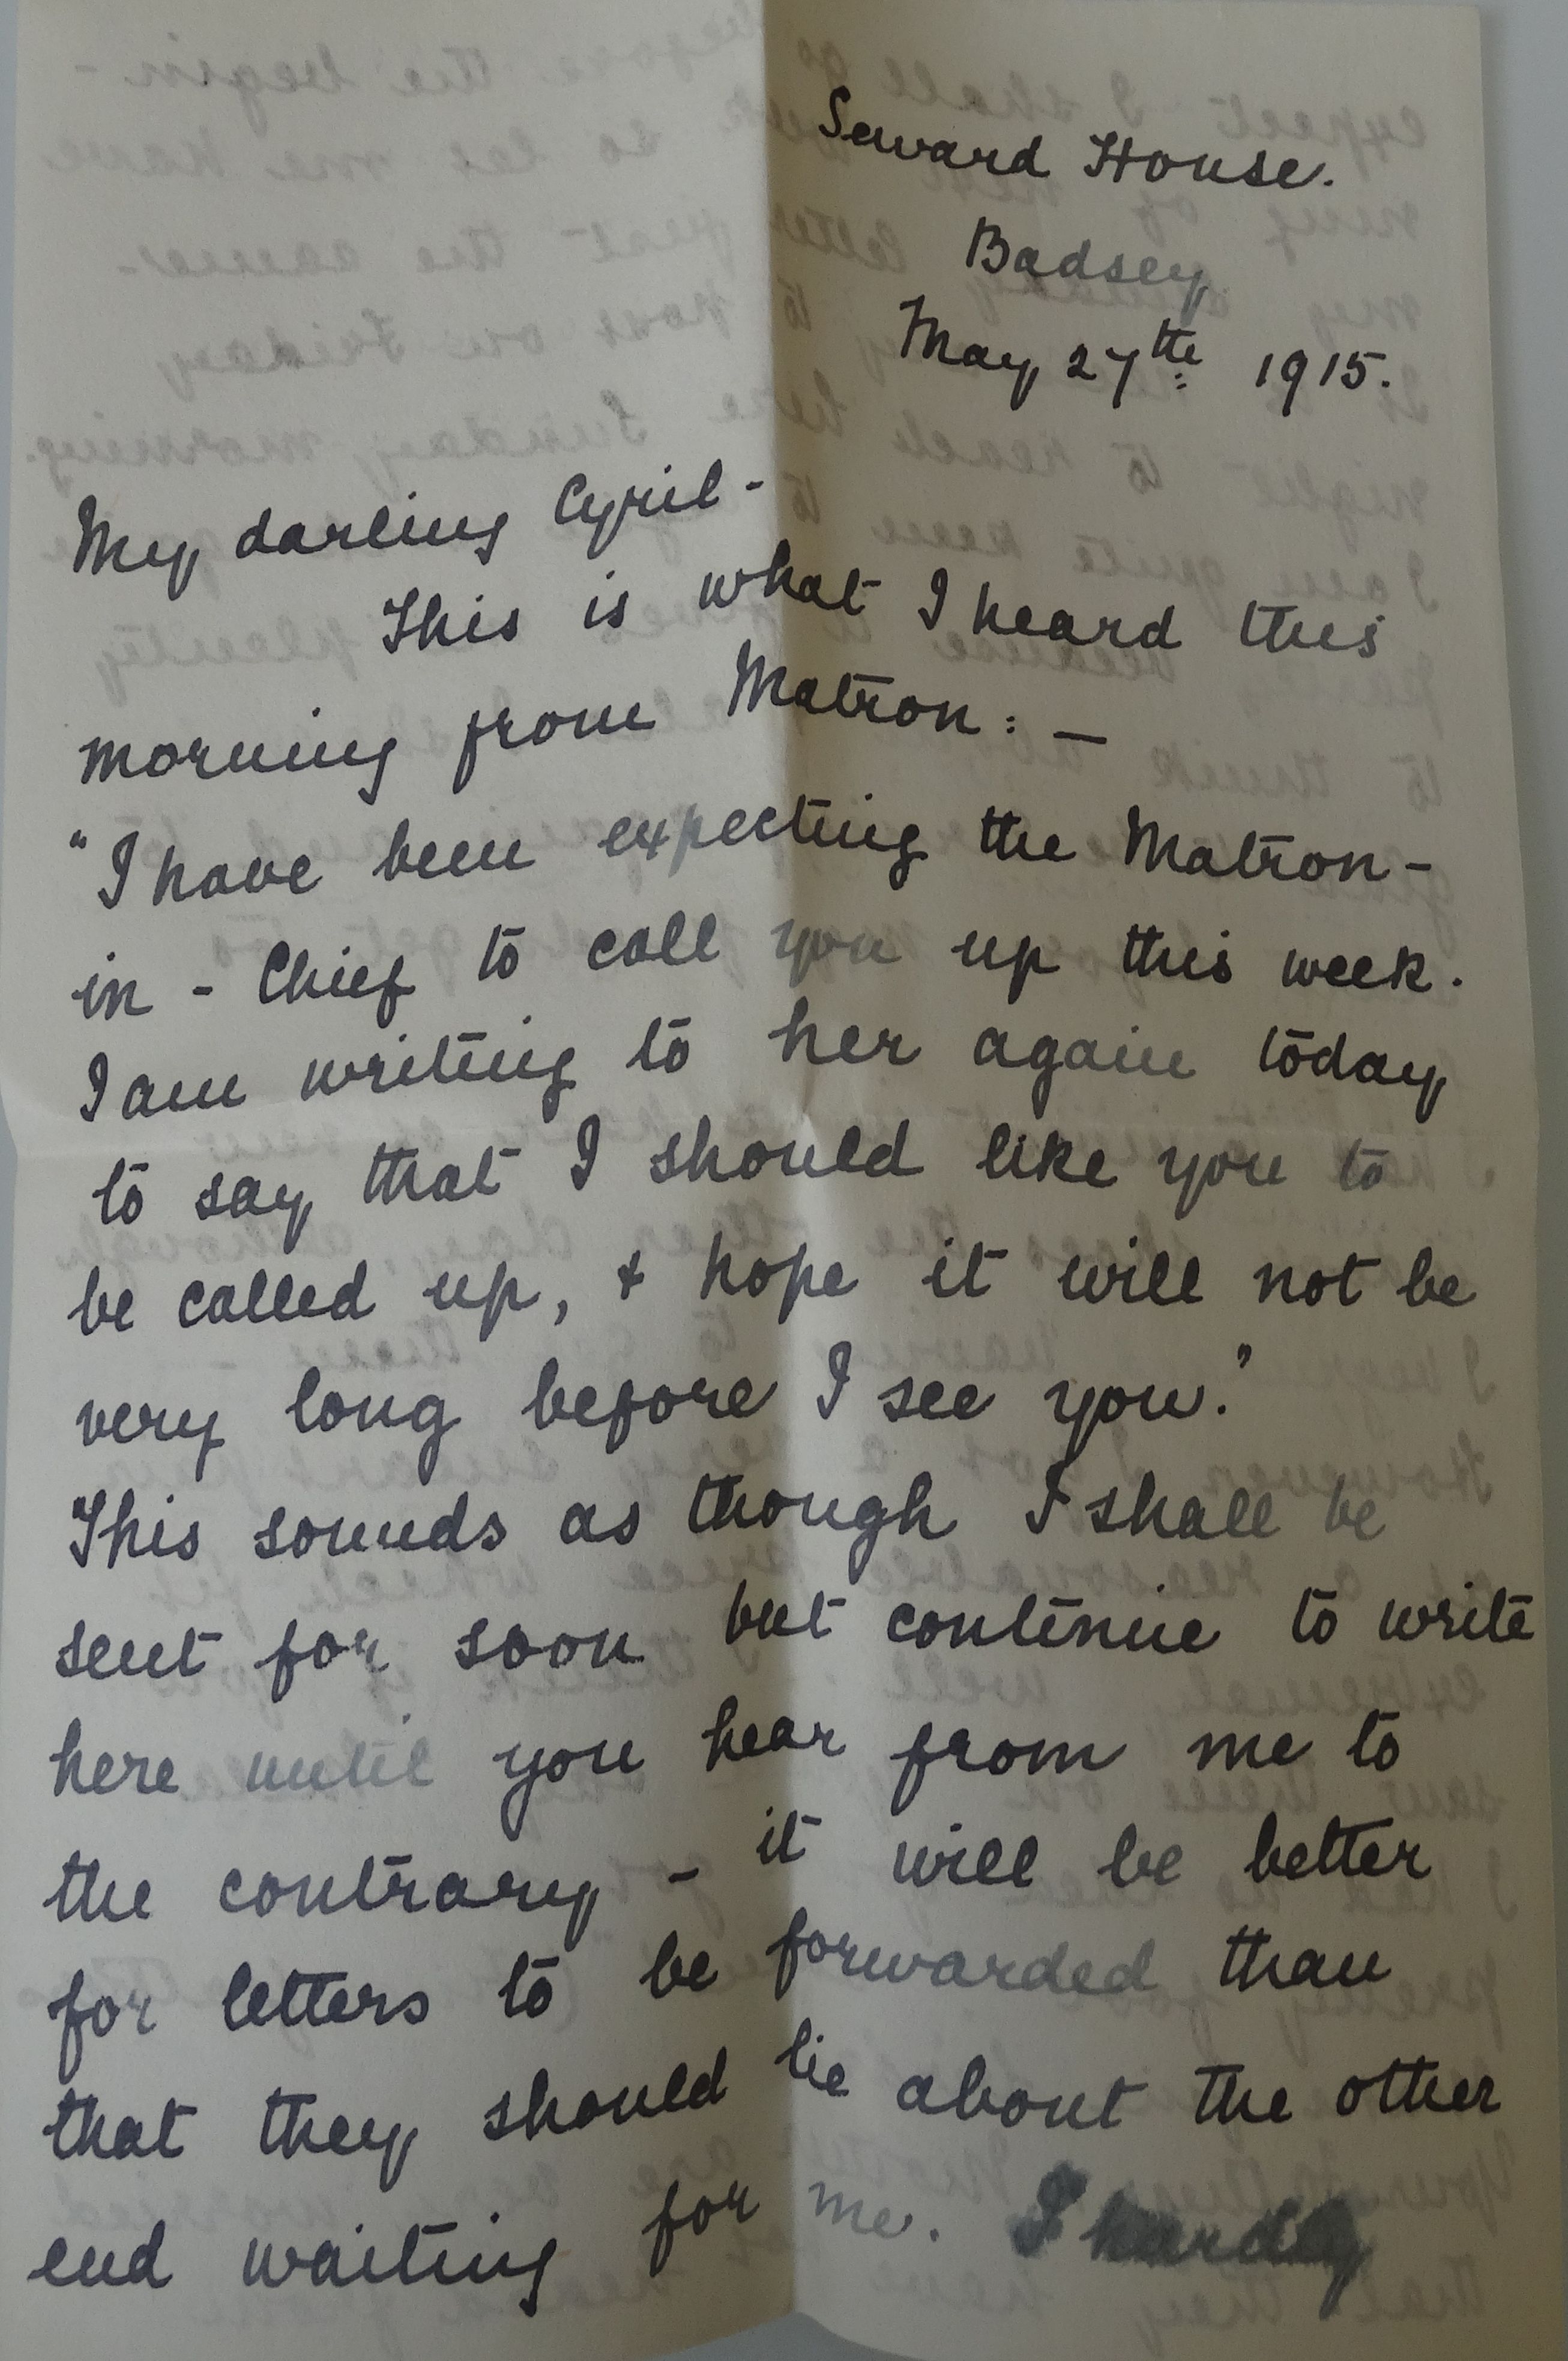 Seward House.
Badsey
May 27th 1915.
My darling Cyril -
This is what I heard this
morning from Matron : —
"I have been expecting the Matron -
in - Chief to call you up this week.
I am writing to her again today
to say that I should like you to
be called up, & hope it will not be
very long before I see you."
This sounds as though I shall be
sent for soon but continue to write
here until you hear from me to
the contrary - it will be better
for letters to be forwarded than
that they should lie about the other
end waiting for me. I hardly